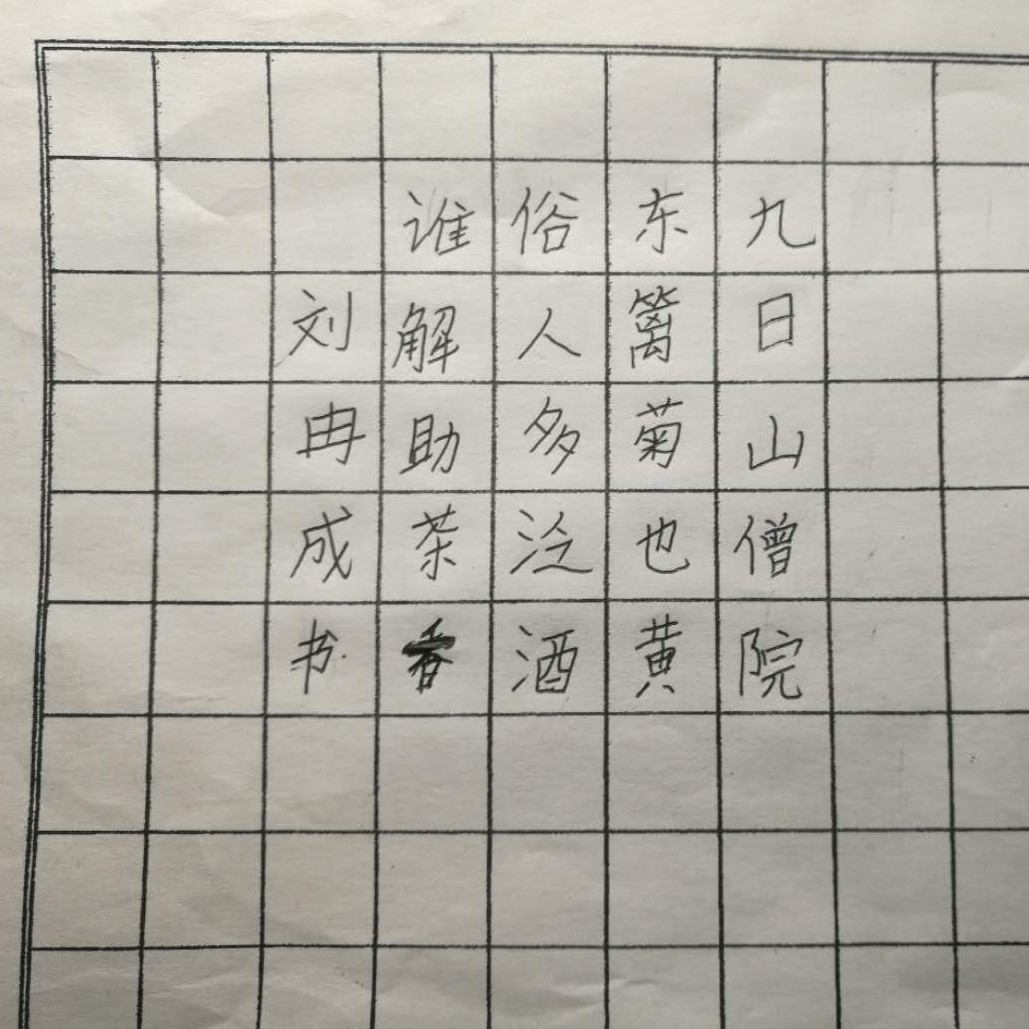 九日山僧院
东篱菊也黄
俗人多泛酒
谁解助茶香
刘冉成书